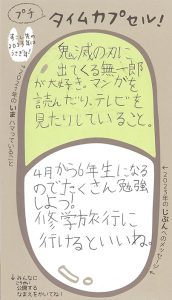 プチ
タイムカプセル!
鬼滅の刃に
出てくる無一郎
が大好き。マンガを
読んだり、テレビを
見たりしていること。
2023年のいまハマっていること
4月から6年生になる
のでたくさん勉強
しよう。
修学旅行に
行けるといいね。
2023年のじぶんへのメッセージ
↓みんなに
公開する
なまえをかいてね!